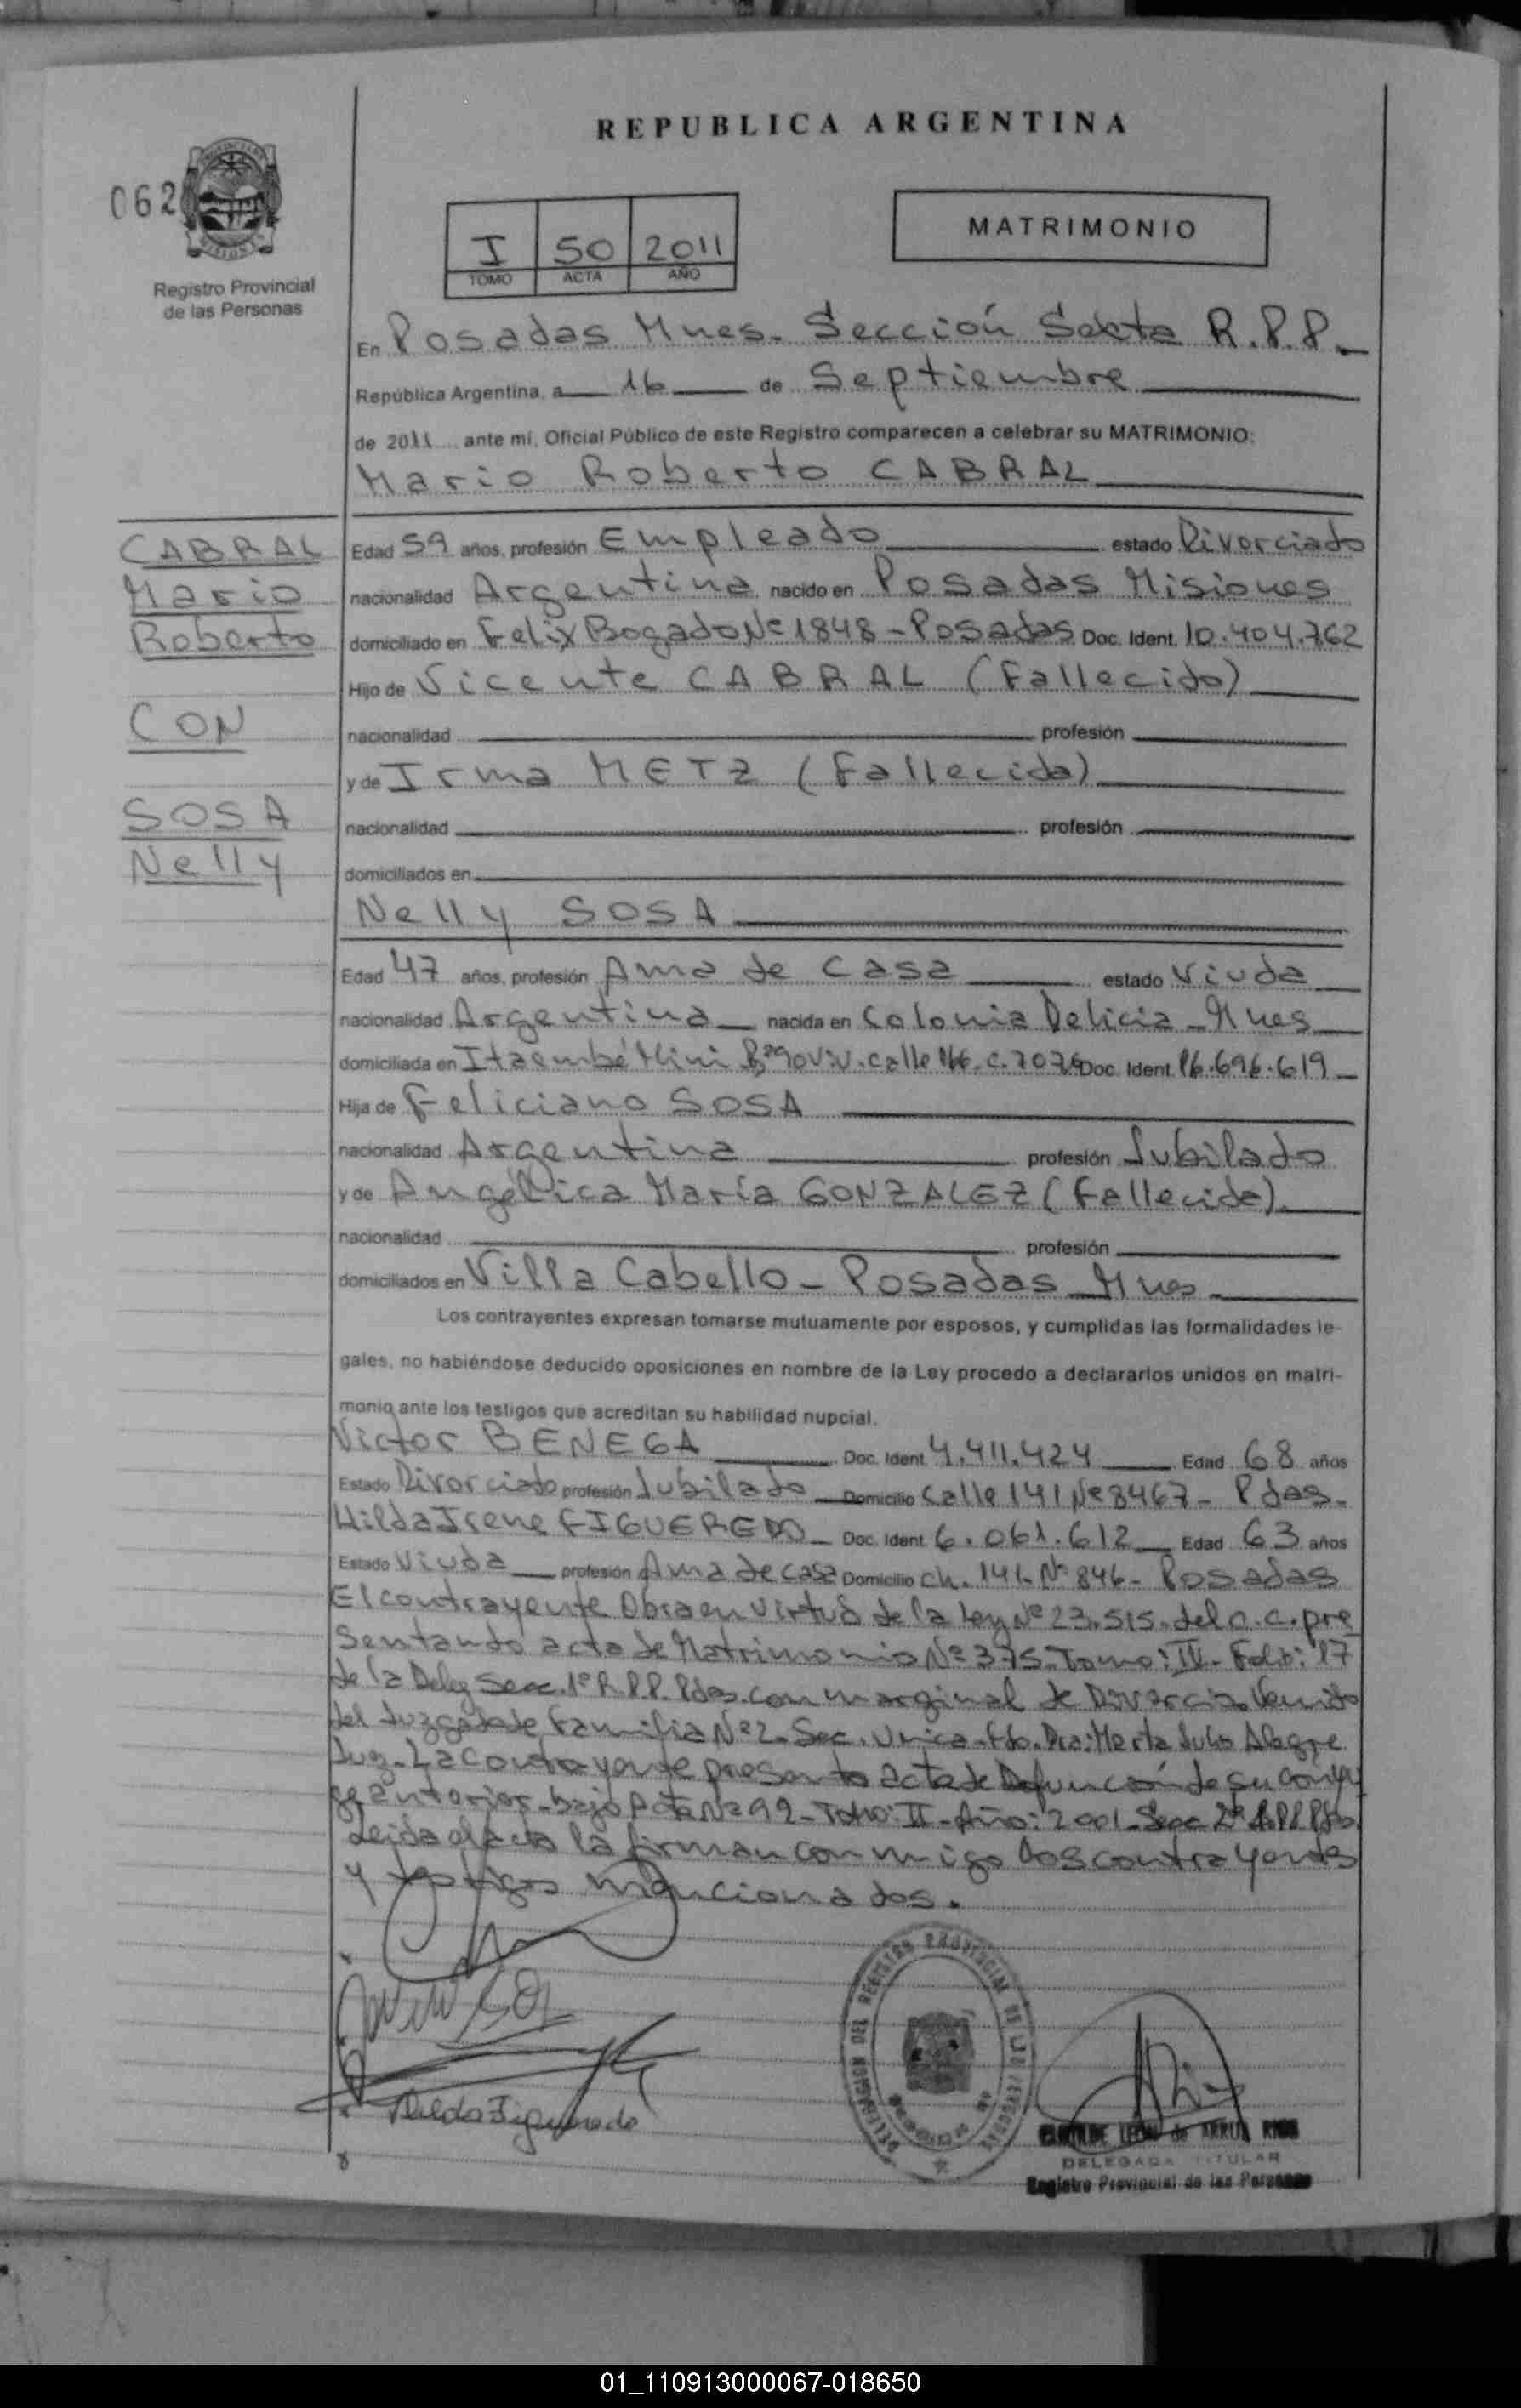 REPUBLICA ARGENTINA
062
Registro Provincial
de las Personas
I 50 2011
TOMO ACTA AÑO
MATRIMONIO
En Posadas Mnes. Sección Sexta R.P.P.
República Argentina, a 16 de Septiembre
de 2011 ante mí, Oficial Público de este Registro comparecen a celebrar su MATRIMONIO:
Mario Roberto CABRAL
CABRAL
Mario
Roberto
CON
SOSA
Nelly
Edad 59 años, profesión Empleado estado Divorciado
nacionalidad Argentina nacido en Posadas Misiones
domiciliado en Felix Bogado Nº 1848 - Posadas Doc. Ident. 10.404.762
Hijo de Vicente CABRAL (Fallecido)
nacionalidad profesión
y de Irma METZ (Fallecida)
nacionalidad profesión
domiciliados en
Nelly SOSA
Edad 47 años, profesión Ama de Casa estado Viuda
nacionalidad Argentina nacida en Colonia Delicia - Mnes
domiciliada en Itaembé Mini Bº 90 Viv. calle 166. C. 7076 Doc. Ident. 16.696.619
Hija de Feliciano SOSA
nacionalidad Argentina profesión Jubilado
y de Angélica María GONZALEZ (Fallecida)
nacionalidad profesión
domiciliados en Villa Cabello - Posadas Mnes
Los contrayentes expresan tomarse mutuamente por esposos, y cumplidas las formalidades le-
gales, no habiéndose deducido oposiciones en nombre de la Ley procedo a declararlos unidos en matri-
monio ante los testigos que acreditan su habilidad nupcial.
Victor BENEGA Doc. Ident. 4.411.424 Edad 68 años
Estado Divorciado profesión Jubilado Domicilio Calle 141 Nº 8467 - Pdas.
Hilda Irene FIGUEREDO Doc. Ident. 6.061.612 Edad 63 años
Estado Viuda profesión Ama de casa Domicilio Ch. 141. Nº 846 - Posadas
El contrayente Obra en virtud de la Ley Nº 23.515. del C.C. pre
sentando acta de Matrimonio Nº 375. Tomo: IV. Folio: 17
de la Deleg Secc. 1º R.P.P. Pdas. con marginal de Divorcio. Venido
del Juzgado de Familia Nº 2. Sec. Unica. Fdo. Dra: Marta Julia Alegre
Juez. La contrayente presento acta de Defunción de su conyu
ge anterior. bajo Acta Nº 99 - Tomo: II - Año: 2001. Secc 2ª R.P.P. Pdas
Leida el acta la firman conmigo los contrayentes
y testigos mencionados.
Hilda Figueredo
DELEGACION DEL REGISTRO PROVINCIAL DE LAS PERSONAS
CLOTILDE LEON de ARRUA
DELEGADA TITULAR
Registro Provincial de las Personas
01_110913000067-018650